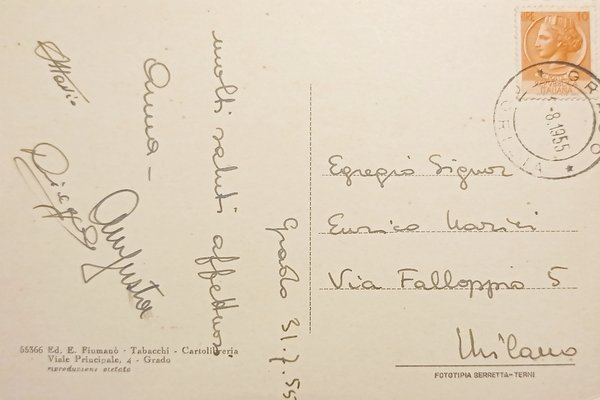 Grado 31.7.55
molti saluti affettuosi
Anna -
Augusta
LIRE 10
ITALIANA
GRADO
-8.1955
Egregio Signor
Enrico
Via Falloppio 5
Milano
55366 Ed. E. Fiumanò - Tabacchi - Cartolibreria
Viale Principale, 4 - Grado
riproduzione vietata
FOTOTIPIA BERRETTA - TERNI